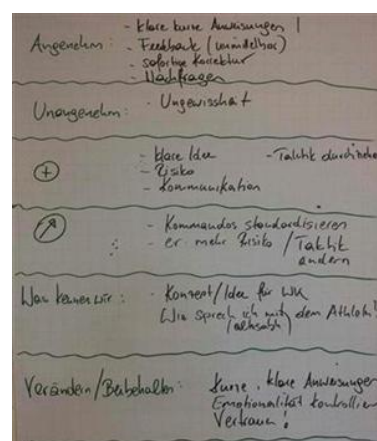 - klare kurze Anweisungen
Angenehm: - Feedback (unmittelbar)
- sofortige Korrektur
- Nachfragen
Unangenehm: - Ungewissheit
+ - klare Idee - Taktik
- Risiko
- Kommunikation
- Kommandos standardisieren
- mehr Risiko / Taktik
ändern
Was können wir: - Konzept/Idee für WK
Wie sprech ich mit dem Athlet
Verändern/Beibehalten: Kurze, klare Anweisungen
Emotionalität kontrollieren
Vertrauen!